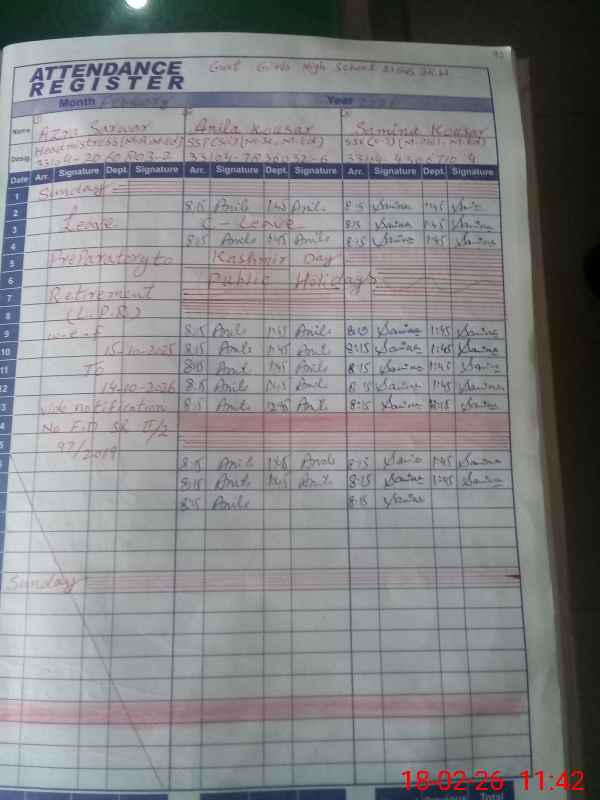 ATTENDANCE
REGISTER
Govt Girls High School
Month February Year
Name Azra Sarwar Anila Kousar Samina Kousar
Desig. Headmistress (M.A, M.Ed) SST (Sci) (M.Sc, M.Ed)
Date Arr. Signature Dept. Signature Arr. Signature Dept. Signature Arr. Signature Dept. Signature
1 Sunday
2 8:15 Anila 1:45 Anila 8:15 Samina 1:45
3 Leave C-Leave 8:15 Samina 1:45 Samina
4 8:15 Anila 1:45 Anila 8:15 Samina 1:45 Samina
5 Preparatory to Kashmir Day
6 Public Holidays
7 Retirement
8 (L.P.R)
9 w.e.f 8:15 Anila 1:45 Anila 8:15 Samina 1:45 Samina
10 15-10-2025 8:15 Anila 1:45 Anila 8:15 Samina 1:45 Samina
11 To 8:15 Anila 1:45 Anila 8:15 Samina 1:45 Samina
12 14-10-2026 8:15 Anila 1:45 Anila 8:15 Samina 1:45 Samina
13 vide notification 8:15 Anila 12:45 Anila 8:15 Samina Samina
No
97/2019
8:15 Anila 1:45 Anila 8:15 Samina 1:45 Samina
8:15 Anila 1:45 Anila 8:15 Samina 1:45 Samina
8:15 Anila 8:15 Samina
Sunday
Total
18-02-26 11:42